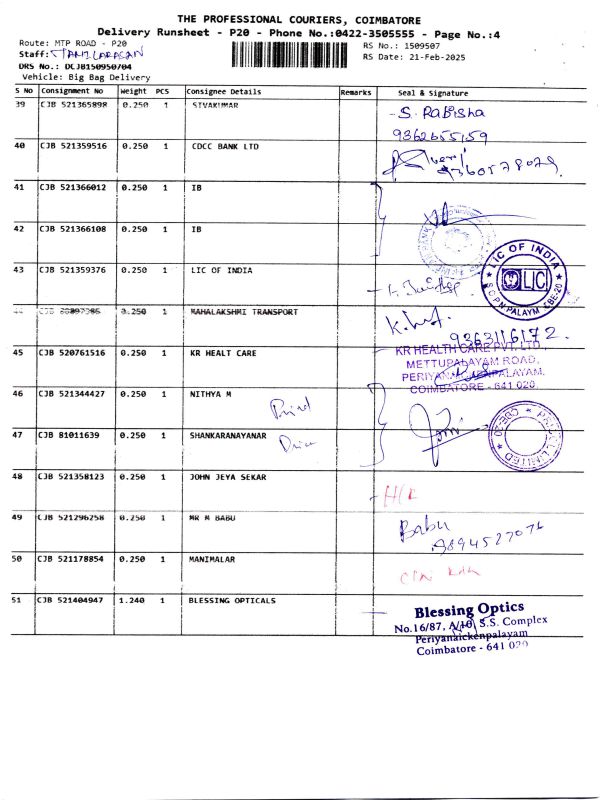 THE PROFESSIONAL COURIERS, COIMBATORE
Delivery Runsheet - P20 - Phone No.:0422-3505555 - Page No.:4
Route: MTP ROAD - P20 RS No.: 1509507
Staff: TAMILARASAN RS Date: 21-Feb-2025
DRS No.: DCJB150950704
Vehicle: Big Bag Delivery
S No Consignment No Weight PCS Consignee Details Remarks Seal & Signature
39 CJB 521365898 0.250 1 SIVAKUMAR - S. Rabisha
9362655159
40 CJB 521359516 0.250 1 CDCC BANK LTD
9360578029.
41 CJB 521366012 0.250 1 IB
42 CJB 521366108 0.250 1 IB
43 CJB 521359376 0.250 1 LIC OF INDIA
LIC OF INDIA
LIC
44 CJB 0.250 1 MAHALAKSHMI TRANSPORT
9363116172.
45 CJB 520761516 0.250 1 KR HEALT CARE
KR HEALTH CARE PVT. LTD.,
METTUPALAYAM ROAD,
COIMBATORE - 641 020
46 CJB 521344427 0.250 1 NITHYA M
47 CJB 81011639 0.250 1 SHANKARANAYANAR
48 CJB 521358123 0.250 1 JOHN JEYA SEKAR
49 CJB 521296258 0.250 1 MR M BABU Babu
9894527076
50 CJB 521178854 0.250 1 MANIMALAR
51 CJB 521404947 1.240 1 BLESSING OPTICALS
Blessing Optics
No.16/87, A/10, S.S. Complex
Periyanaickenpalayam
Coimbatore - 641 020